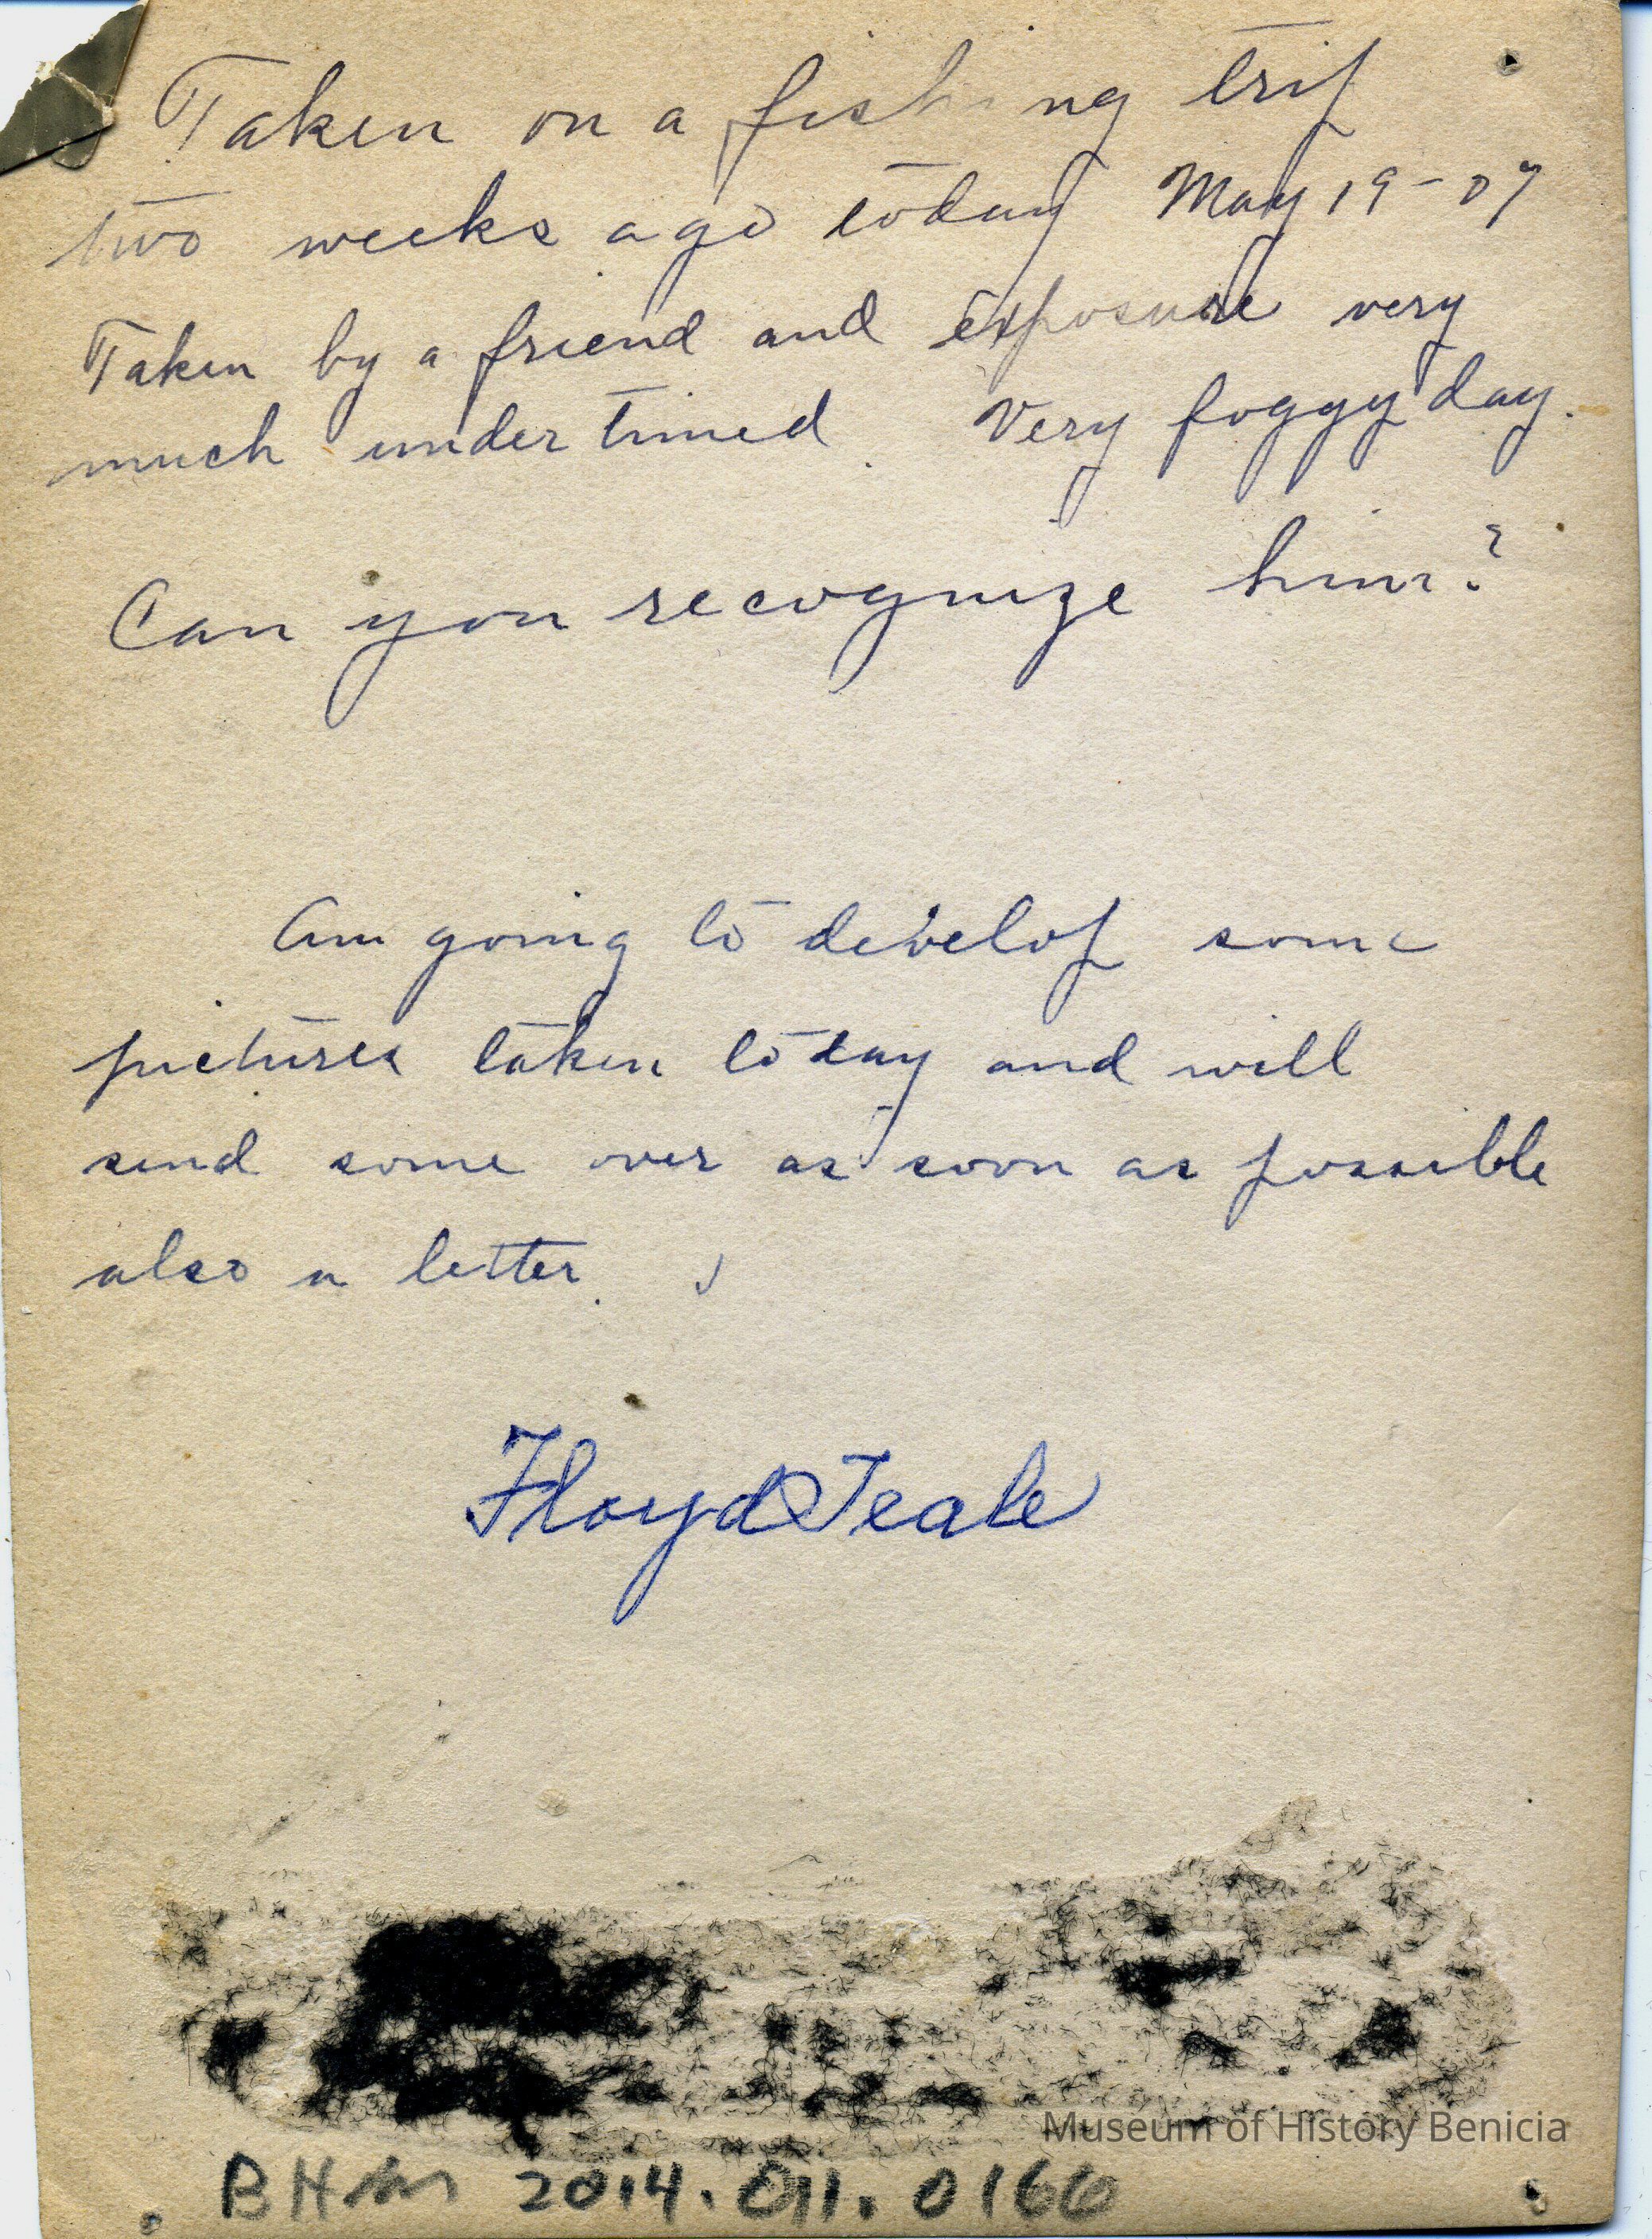 Taken on a fishing trip
two weeks ago today May 19-07
Taken by a friend and exposure very
much under timed. Very foggy day.
Can you recognize him?
Am going to develop some
pictures taken today and will
send some over as soon as possible
also a letter.
Floyd Teale
Museum of History Benicia
BHM 2014.011.0166